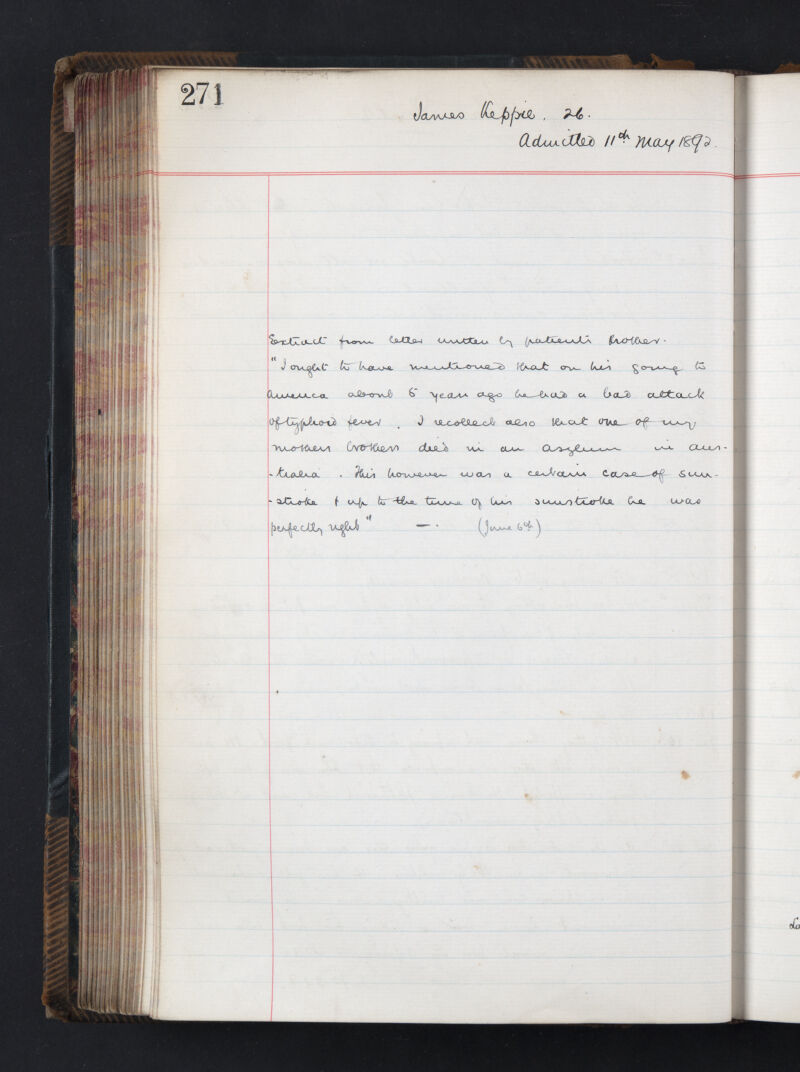 271
James Keppie. 26.
Admitted 11th May 1892.
Extract from letter written by patient's Brother.
"I ought to have mentioned that on his going to
America about 5 years ago he had a bad attack
of typhoid fever. I recollect also that one of my
mothers brothers died in an asylum in aus-
-tralia. This however was a certain case of sun-
-stroke & up to the time of his sunstroke he was
perfectly right" —. (June 6th)